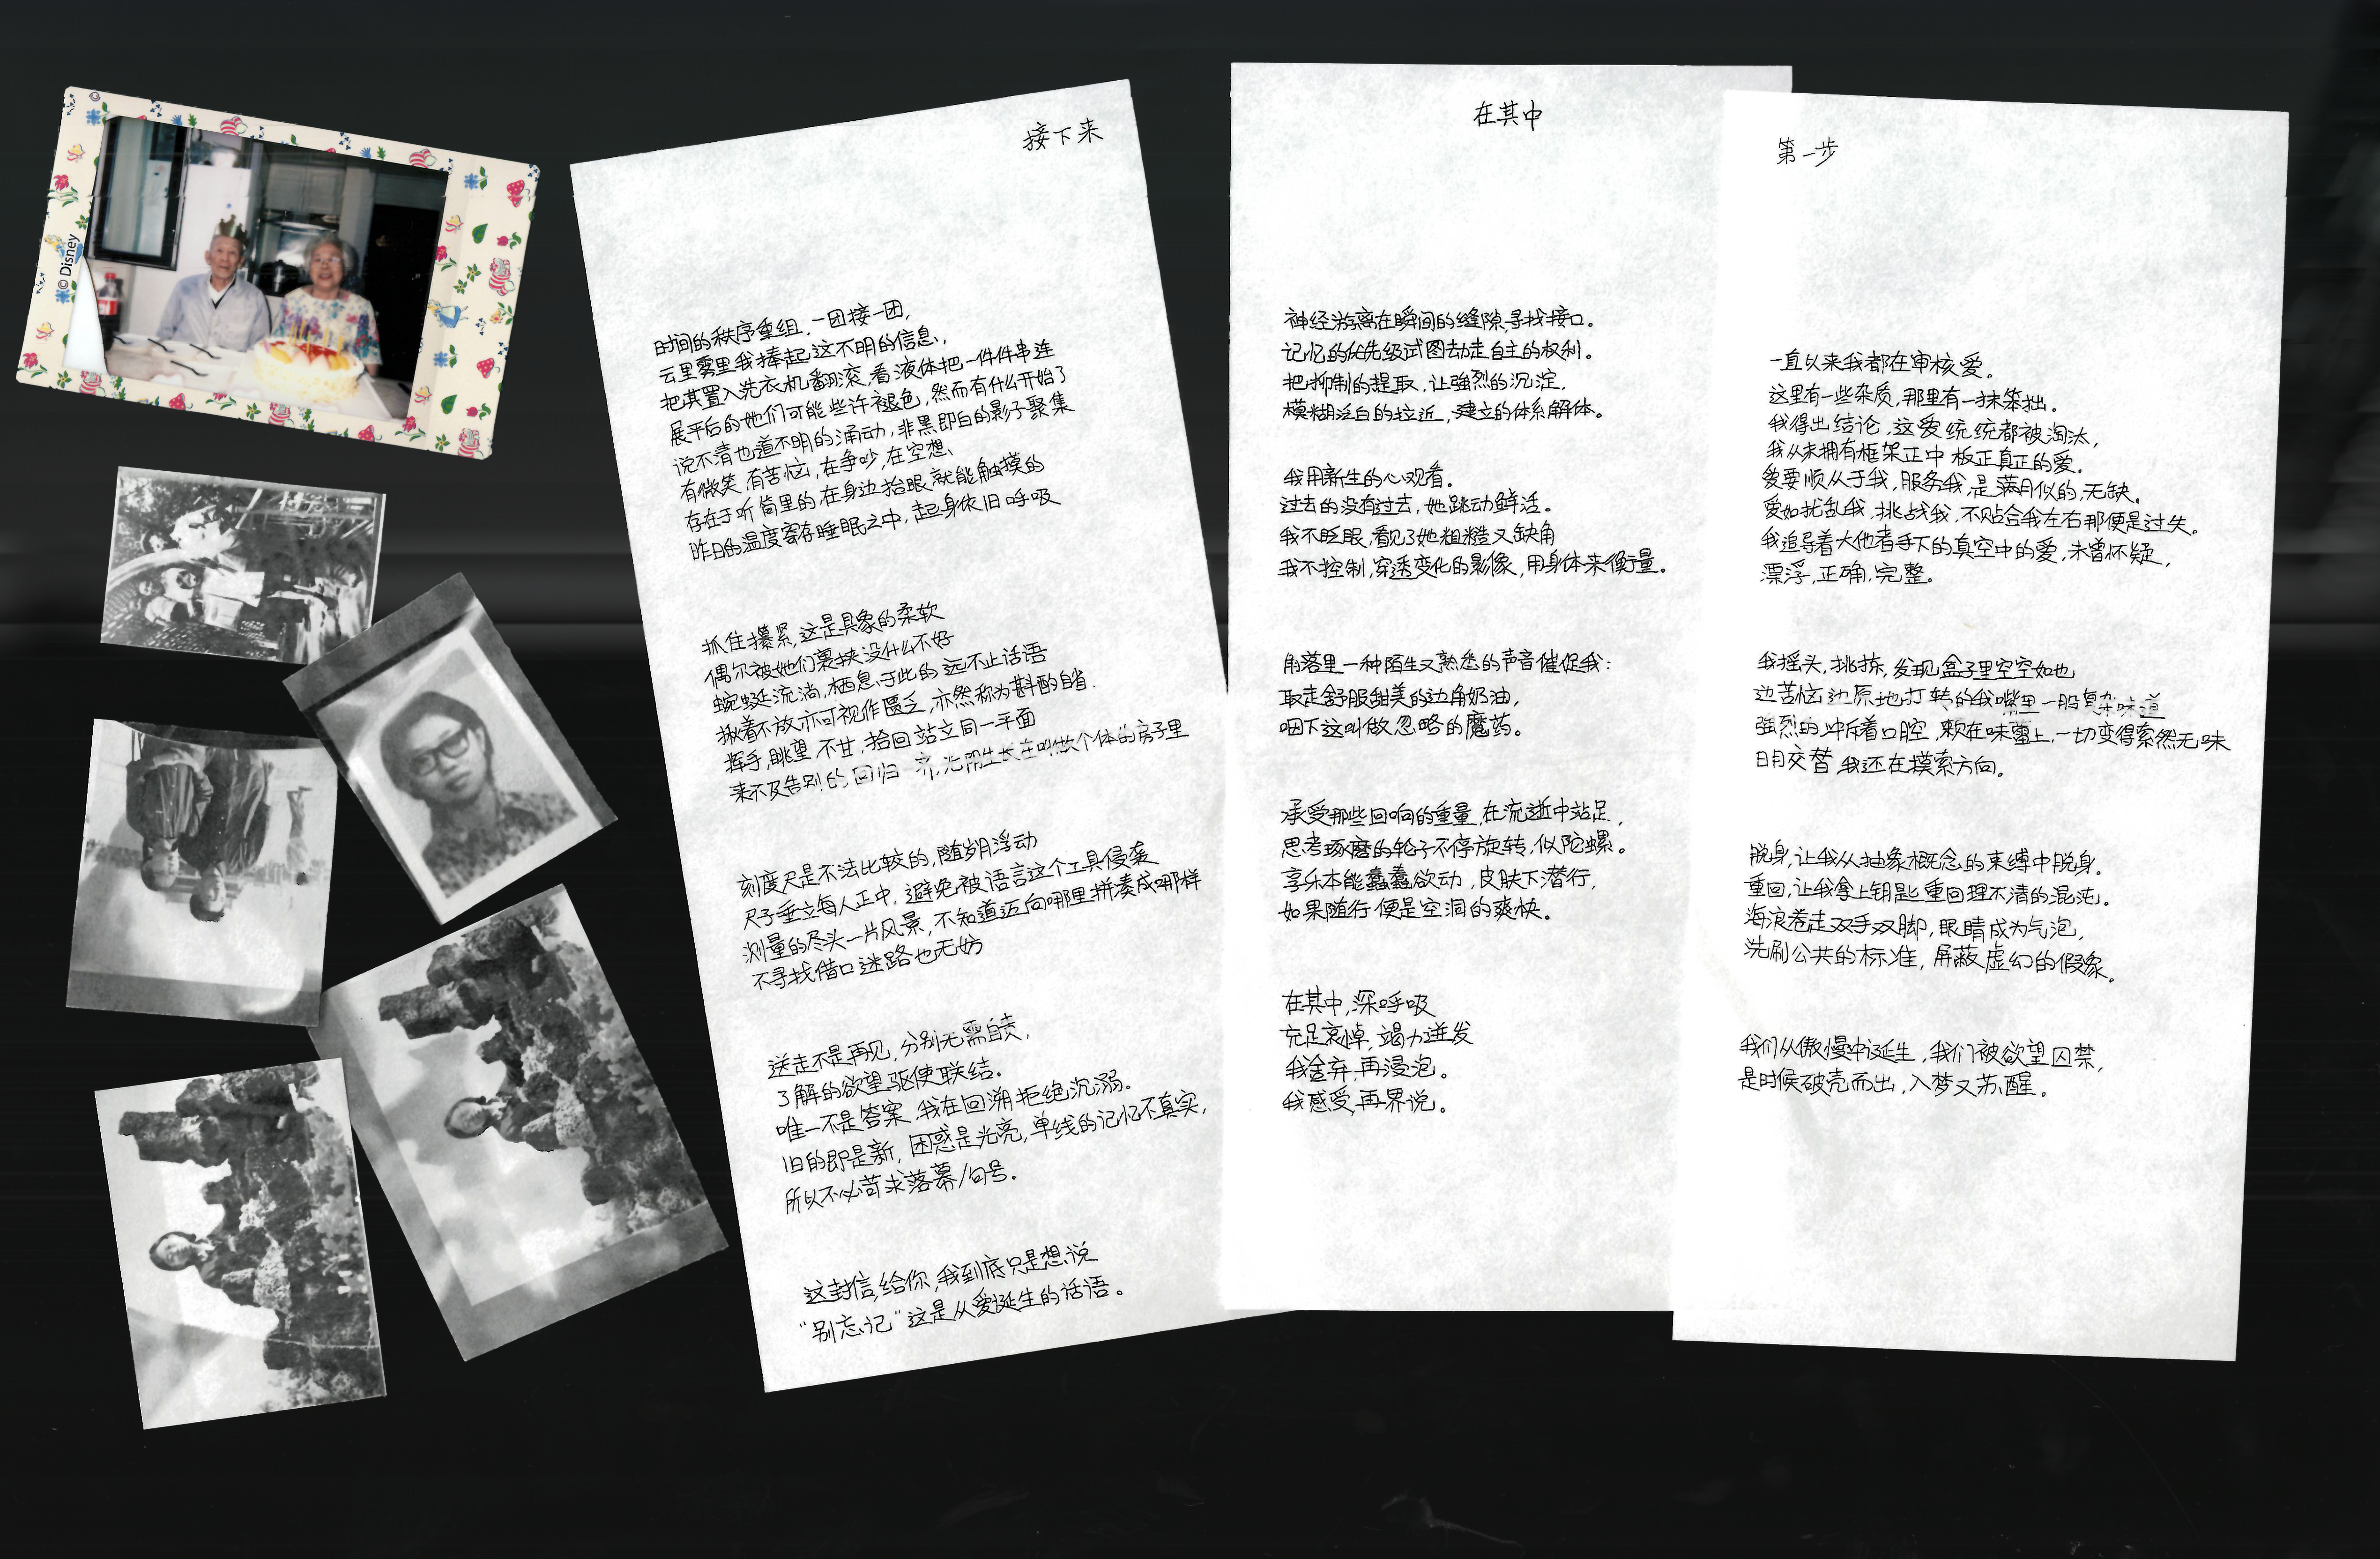 © Disney
接下来
时间的秩序重组，一团接一团，
云里雾里我捧起这不明的信息，
把其置入洗衣机翻滚，看液体把一件件串连
展平后的她们可能些许褪色，然而有什么开始了
说不清也道不明的涌动，非黑即白的影子聚集
有微笑，有苦恼，在争吵，在空想、
存在于听筒里的，在身边抬眼就能触摸的
昨日的温度寄存睡眠之中，起身依旧呼吸
抓住攥紧，这是具象的柔软
偶尔被她们裹挟没什么不好
蜿蜒流淌，栖息于此的远不止话语
揪着不放亦可视作匮乏，亦然称为斟酌自省．
挥手，眺望，不甘，拾回站立同一平面
来不及告别的回归 光阴生长在叫做个体的房子里
刻度尺是不法比较的，随岁月浮动
尺子垂立每人正中，避免被语言这个工具侵袭
测量的尽头一片风景，不知道迈向哪里拼凑成哪样
不寻找借口迷路也无妨
送走不是再见，分别无需自责，
了解的欲望驱使联结。
唯一不是答案，我在回溯拒绝沉溺．
旧的即是新，困惑是光亮，单线的记忆不真实，
所以不必苛求落幕/句号。
这封信，给你，我到底只是想说
“别忘记”这是从爱诞生的话语。
在其中
神经游离在瞬间的缝隙，寻找接口。
记忆的优先级试图劫走自主的权利。
把抑制的提取，让强烈的沉淀，
模糊泛白的拉近，建立的体系解体。
我用新生的心观看。
过去的没有过去，她跳动鲜活。
我不眨眼，看见了她粗糙又缺角
我不控制，穿透变化的影像，用身体来衡量。
角落里一种陌生又熟悉的声音催促我：
取走舒服甜美的边角奶油，
咽下这叫做忽略的魔药。
承受那些回响的重量，在流逝中站足，
思考琢磨的轮子不停旋转，似陀螺。
享乐本能蠢蠢欲动，皮肤下潜行，
如果随行便是空洞的爽快。
在其中，深呼吸
充足哀悼，竭力迸发
我舍弃，再浸泡。
我感受，再界说。
第一步
一直以来我都在审核爱。
这里有一些杂质，那里有一抹笨拙。
我得出结论，这爱统统都被淘汰，
我从未拥有框架正中 板正真正的爱．
爱要顺从于我，服务我，是满月似的，无缺。
爱如扰乱我，挑战我，不贴合我左右那便是过失。
我追寻着大他者手下的真空中的爱，未曾怀疑，
漂浮，正确，完整。
我摇头，挑拣，发现盒子里空空如也
边苦恼边原地打转的我嘴里一股复杂味道
强烈的冲斥着口腔，颗在味蕾上，一切变得索然无味
日月交替，我还在摸索方向。
脱身，让我从抽象概念的束缚中脱身。
重回，让我拿上钥匙重回理不清的混沌。
海浪卷走双手双脚，眼睛成为气泡，
洗刷公共的标准，屏蔽虚幻的假象。
我们从傲慢中诞生，我们被欲望囚禁，
是时候破壳而出，入梦又苏醒。